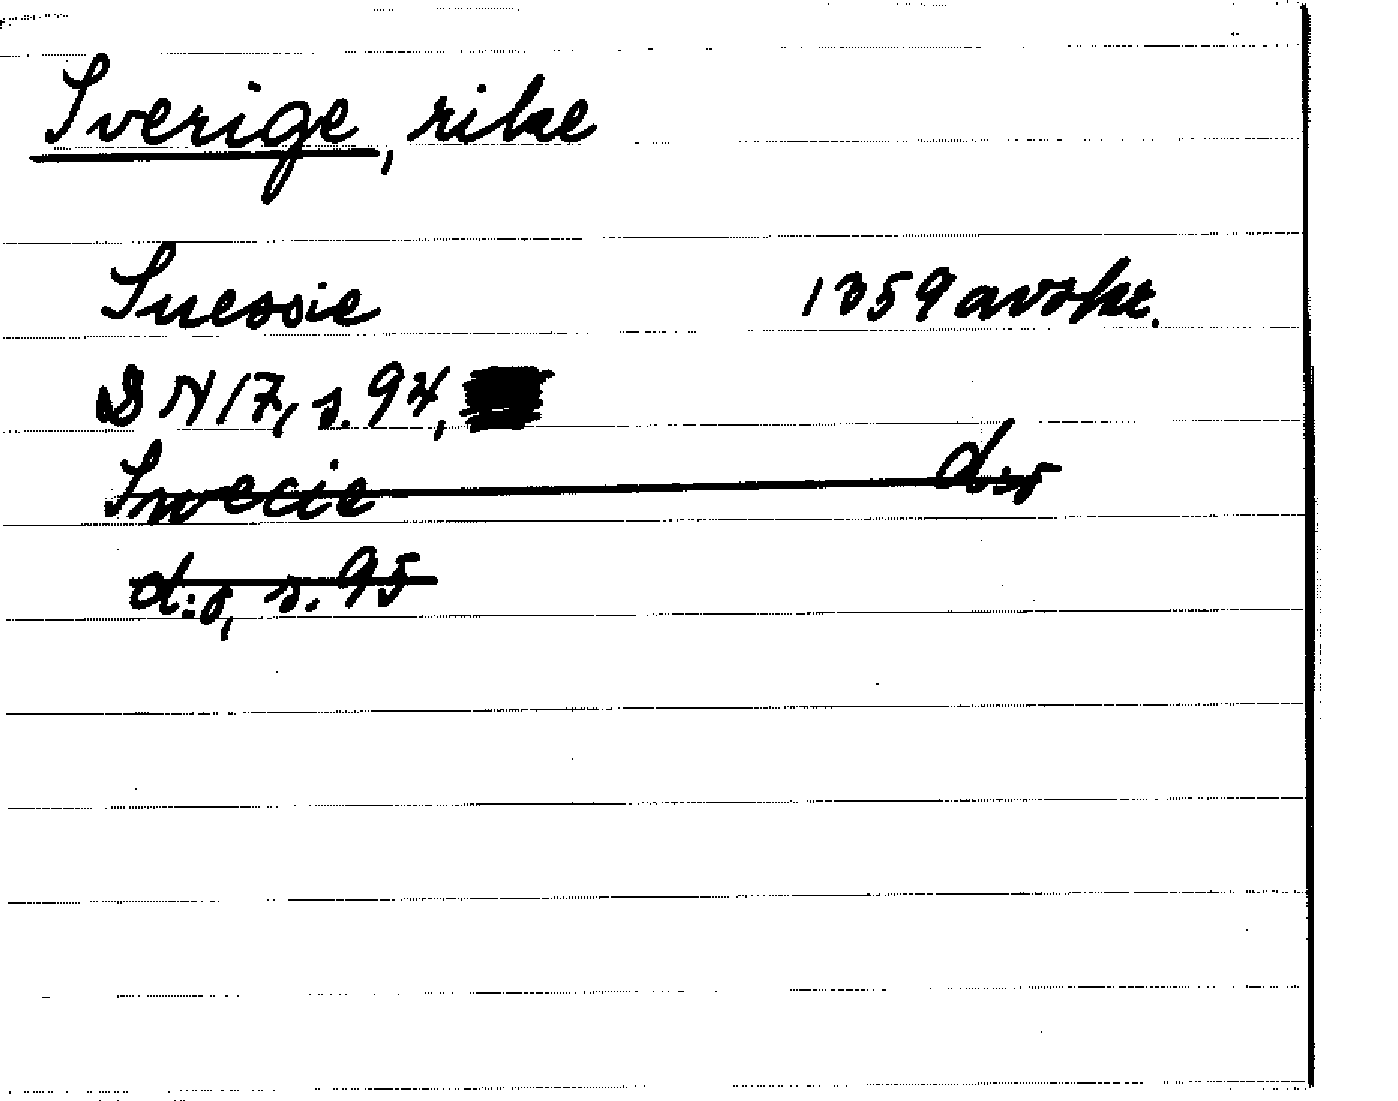 Sverige, rike
Suessie 1359 avskr.
DN 17, s. 94,
Swecie d:o
d:o, s. 95